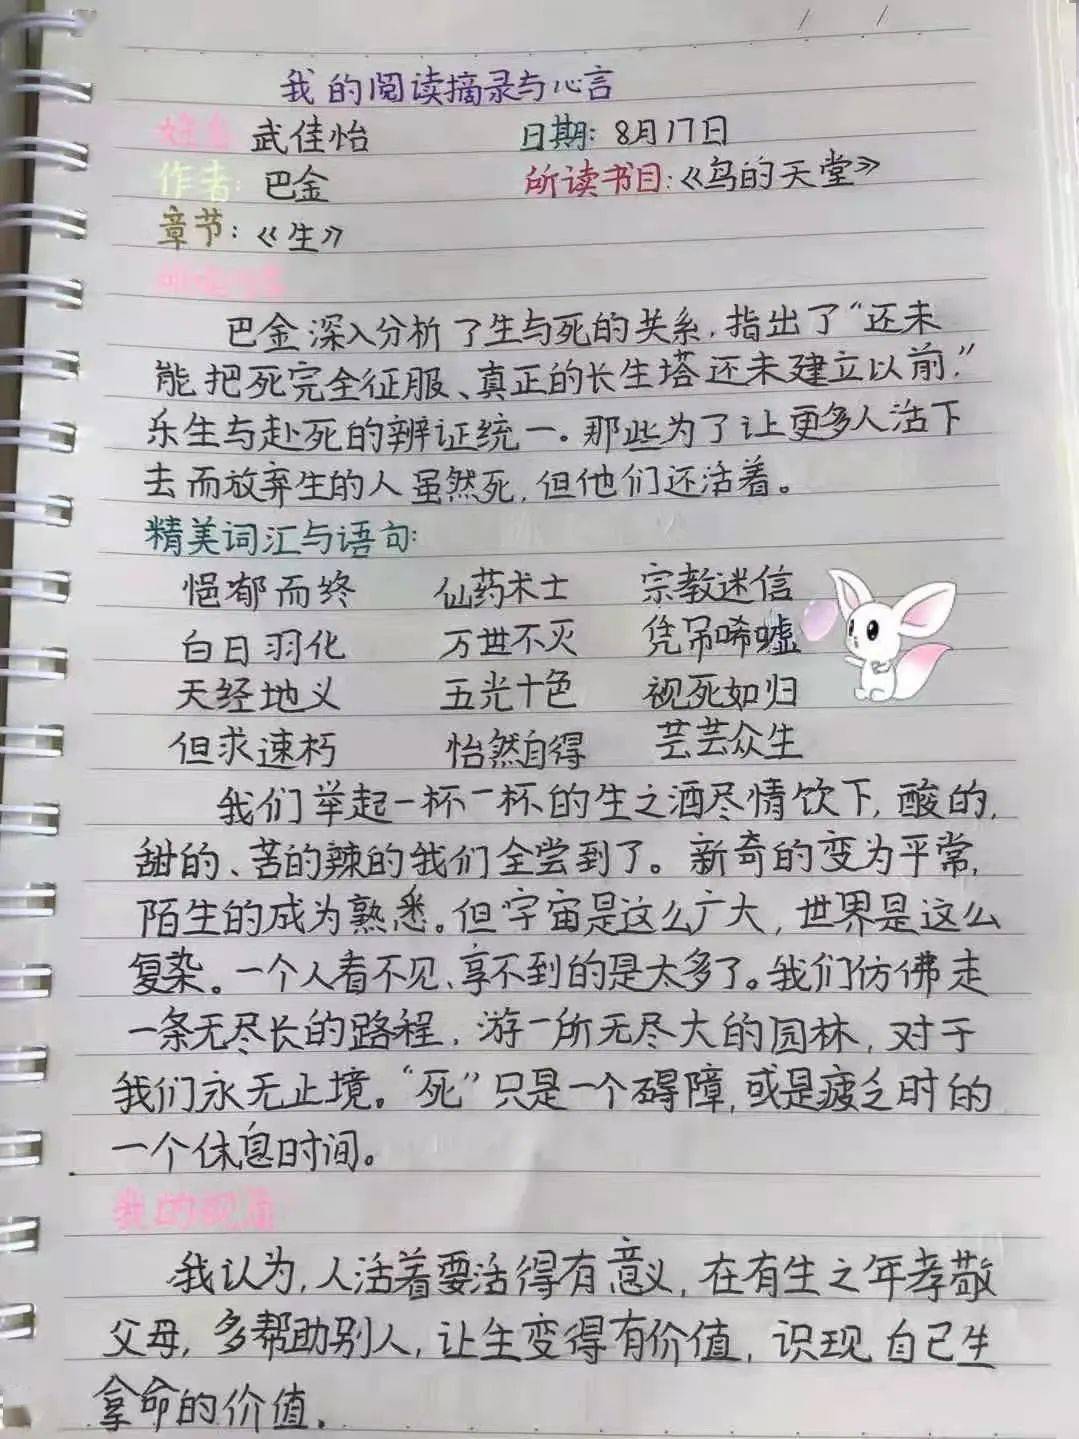 我的阅读摘录与心言
姓名 武佳怡 日期: 8月17日
作者: 巴金 所读书目:《鸟的天堂》
章节:《生》
巴金深入分析了生与死的关系,指出了“还未
能把死完全征服、真正的长生塔还未建立以前,”
乐生与赴死的辨证统一。那些为了让更多人活下
去而放弃生的人虽然死,但他们还活着。
精美词汇与语句:
悒郁而终 仙药术士 宗教迷信
白日羽化 万世不灭 凭吊唏嘘
天经地义 五光十色 视死如归
但求速朽 怡然自得 芸芸众生
我们举起一杯一杯的生之酒尽情饮下,酸的,
甜的、苦的辣的我们全尝到了。新奇的变为平常,
陌生的成为熟悉。但宇宙是这么广大,世界是这么
复杂。一个人看不见、享不到的是太多了。我们仿佛走
一条无尽长的路程,游一所无尽大的园林,对于
我们永无止境。“死”只是一个碍障,或是疲乏时的
一个休息时间。
我的视角
我认为,人活着要活得有意义,在有生之年孝敬
父母,多帮助别人,让生变得有价值,识现自己生
命的价值.